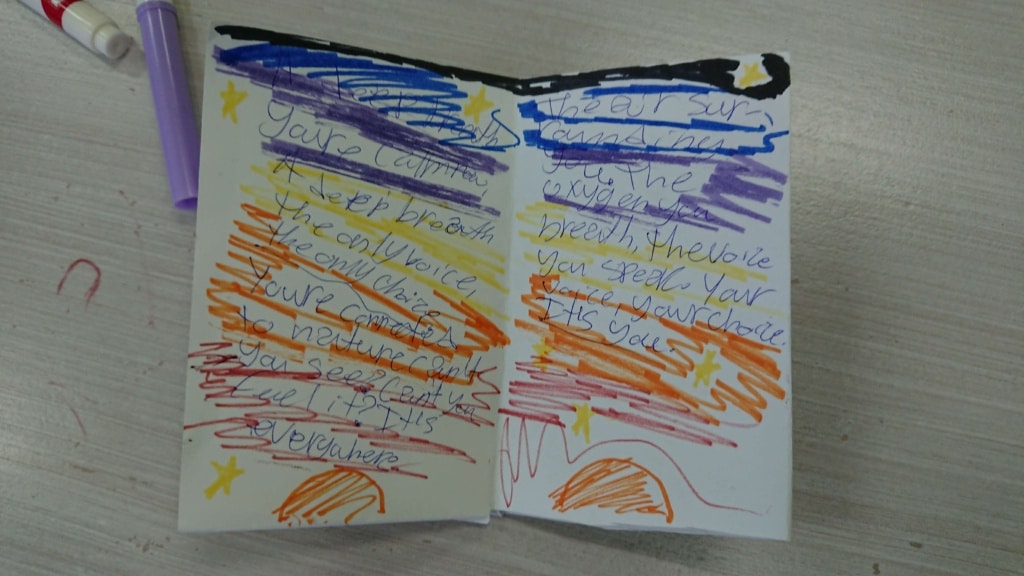 A deep breath
You're calming
A deep breath
the only voice,
the only choice
You're connected
to nature can't
you see? Can't you
feel it? It is
everywhere
The air sur-
rounding
you, the
oxygen you
breath, the voice
you speak. Your
voice, your choice.
It is you.